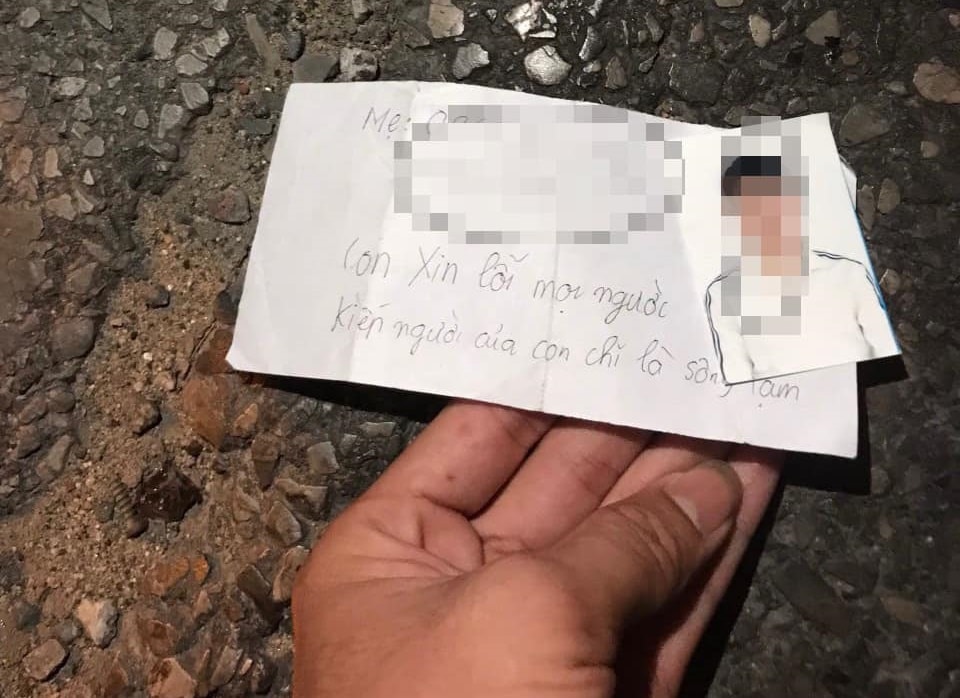 Mẹ: 09
Con Xin lỗi mọi người
Kiếp người của con chỉ là sống tạm